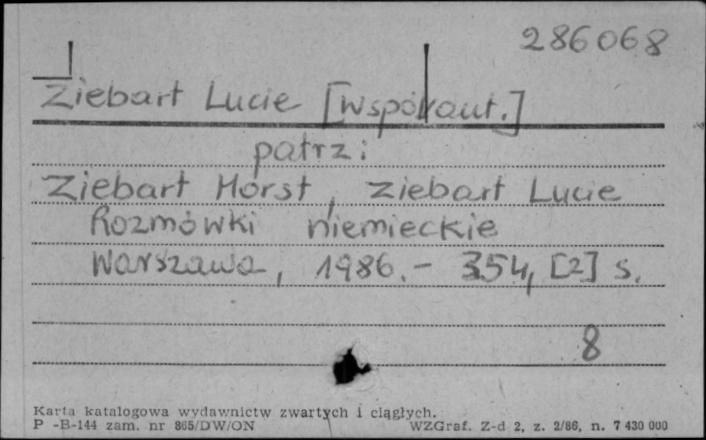 286068
Ziebart Lucie [współaut.]
patrz:
Ziebart Horst, Ziebart Lucie
Rozmówki niemieckie
Warszawa, 1986. - 354, [2] s.
8
Karta katalogowa wydawnictw zwartych i ciągłych.
P -B-144 zam. nr 865/DW/ON WZGraf. Z-d 2, z. 2/86, n. 7 430 000